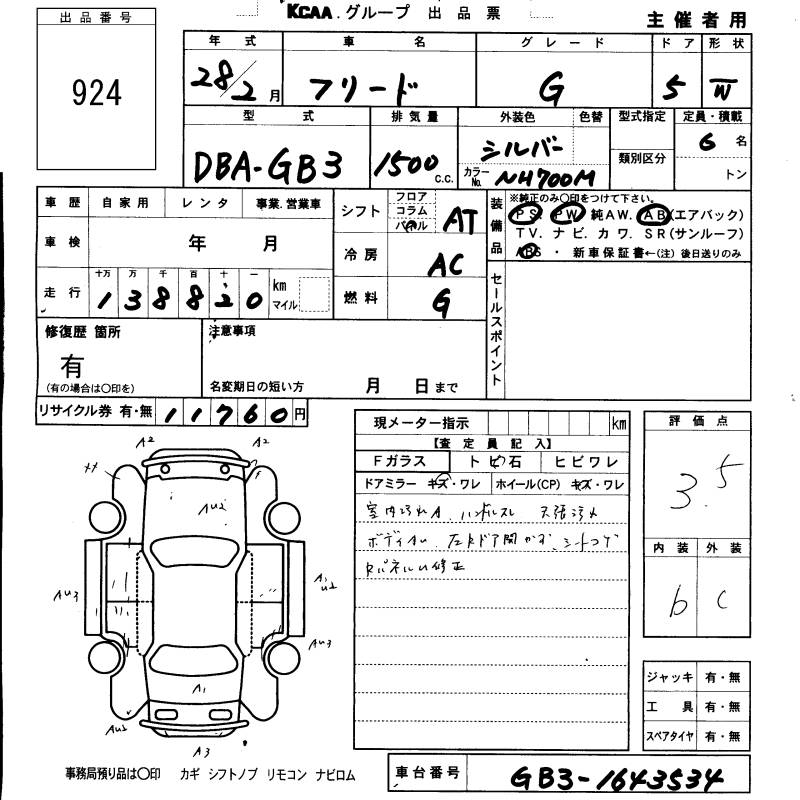 KCAA.グループ 出品票
主催者用
出品番号
924
年式 車名 グレード ドア 形状
28/2月 フリード G 5 W
型式 排気量 外装色 色替 型式指定 定員・積載
DBA-GB3 1500 c.c. シルバー 6名
カラーNo. NH700M 類別区分 トン
車歴 自家用 レンタ 事業.営業車
車検 年 月
走行 十万 万 千 百 十 一
138820 km マイル
シフト フロア コラム パネル AT
冷房 AC
燃料 G
装備品 ※純正のみ〇印をつけて下さい。
PS. PW 純AW. AB(エアバック)
TV. ナビ. カワ. SR(サンルーフ)
ABS・新車保証書←(注)後日送りのみ
セールスポイント
修復歴 箇所
有
(有の場合は〇印を)
注意事項
名変期日の短い方 月 日まで
リサイクル券 有・無 11760円
現メーター指示 km
【査定員記入】
Fガラス トビ石 ヒビワレ
ドアミラー キズ・ワレ ホイール(CP) キズ・ワレ
室内汚れA. ハンドルスレ 天張汚れ
シートコゲ
修正
評価点
3.5
内装 外装
b c
ジャッキ 有・無
工具 有・無
スペアタイヤ 有・無
A2 A2
AU2
AU3
A1
AU2
AU3
A1
AU2
A3
事務局預り品は〇印 カギ シフトノブ リモコン ナビロム
車台番号 GB3-1643534